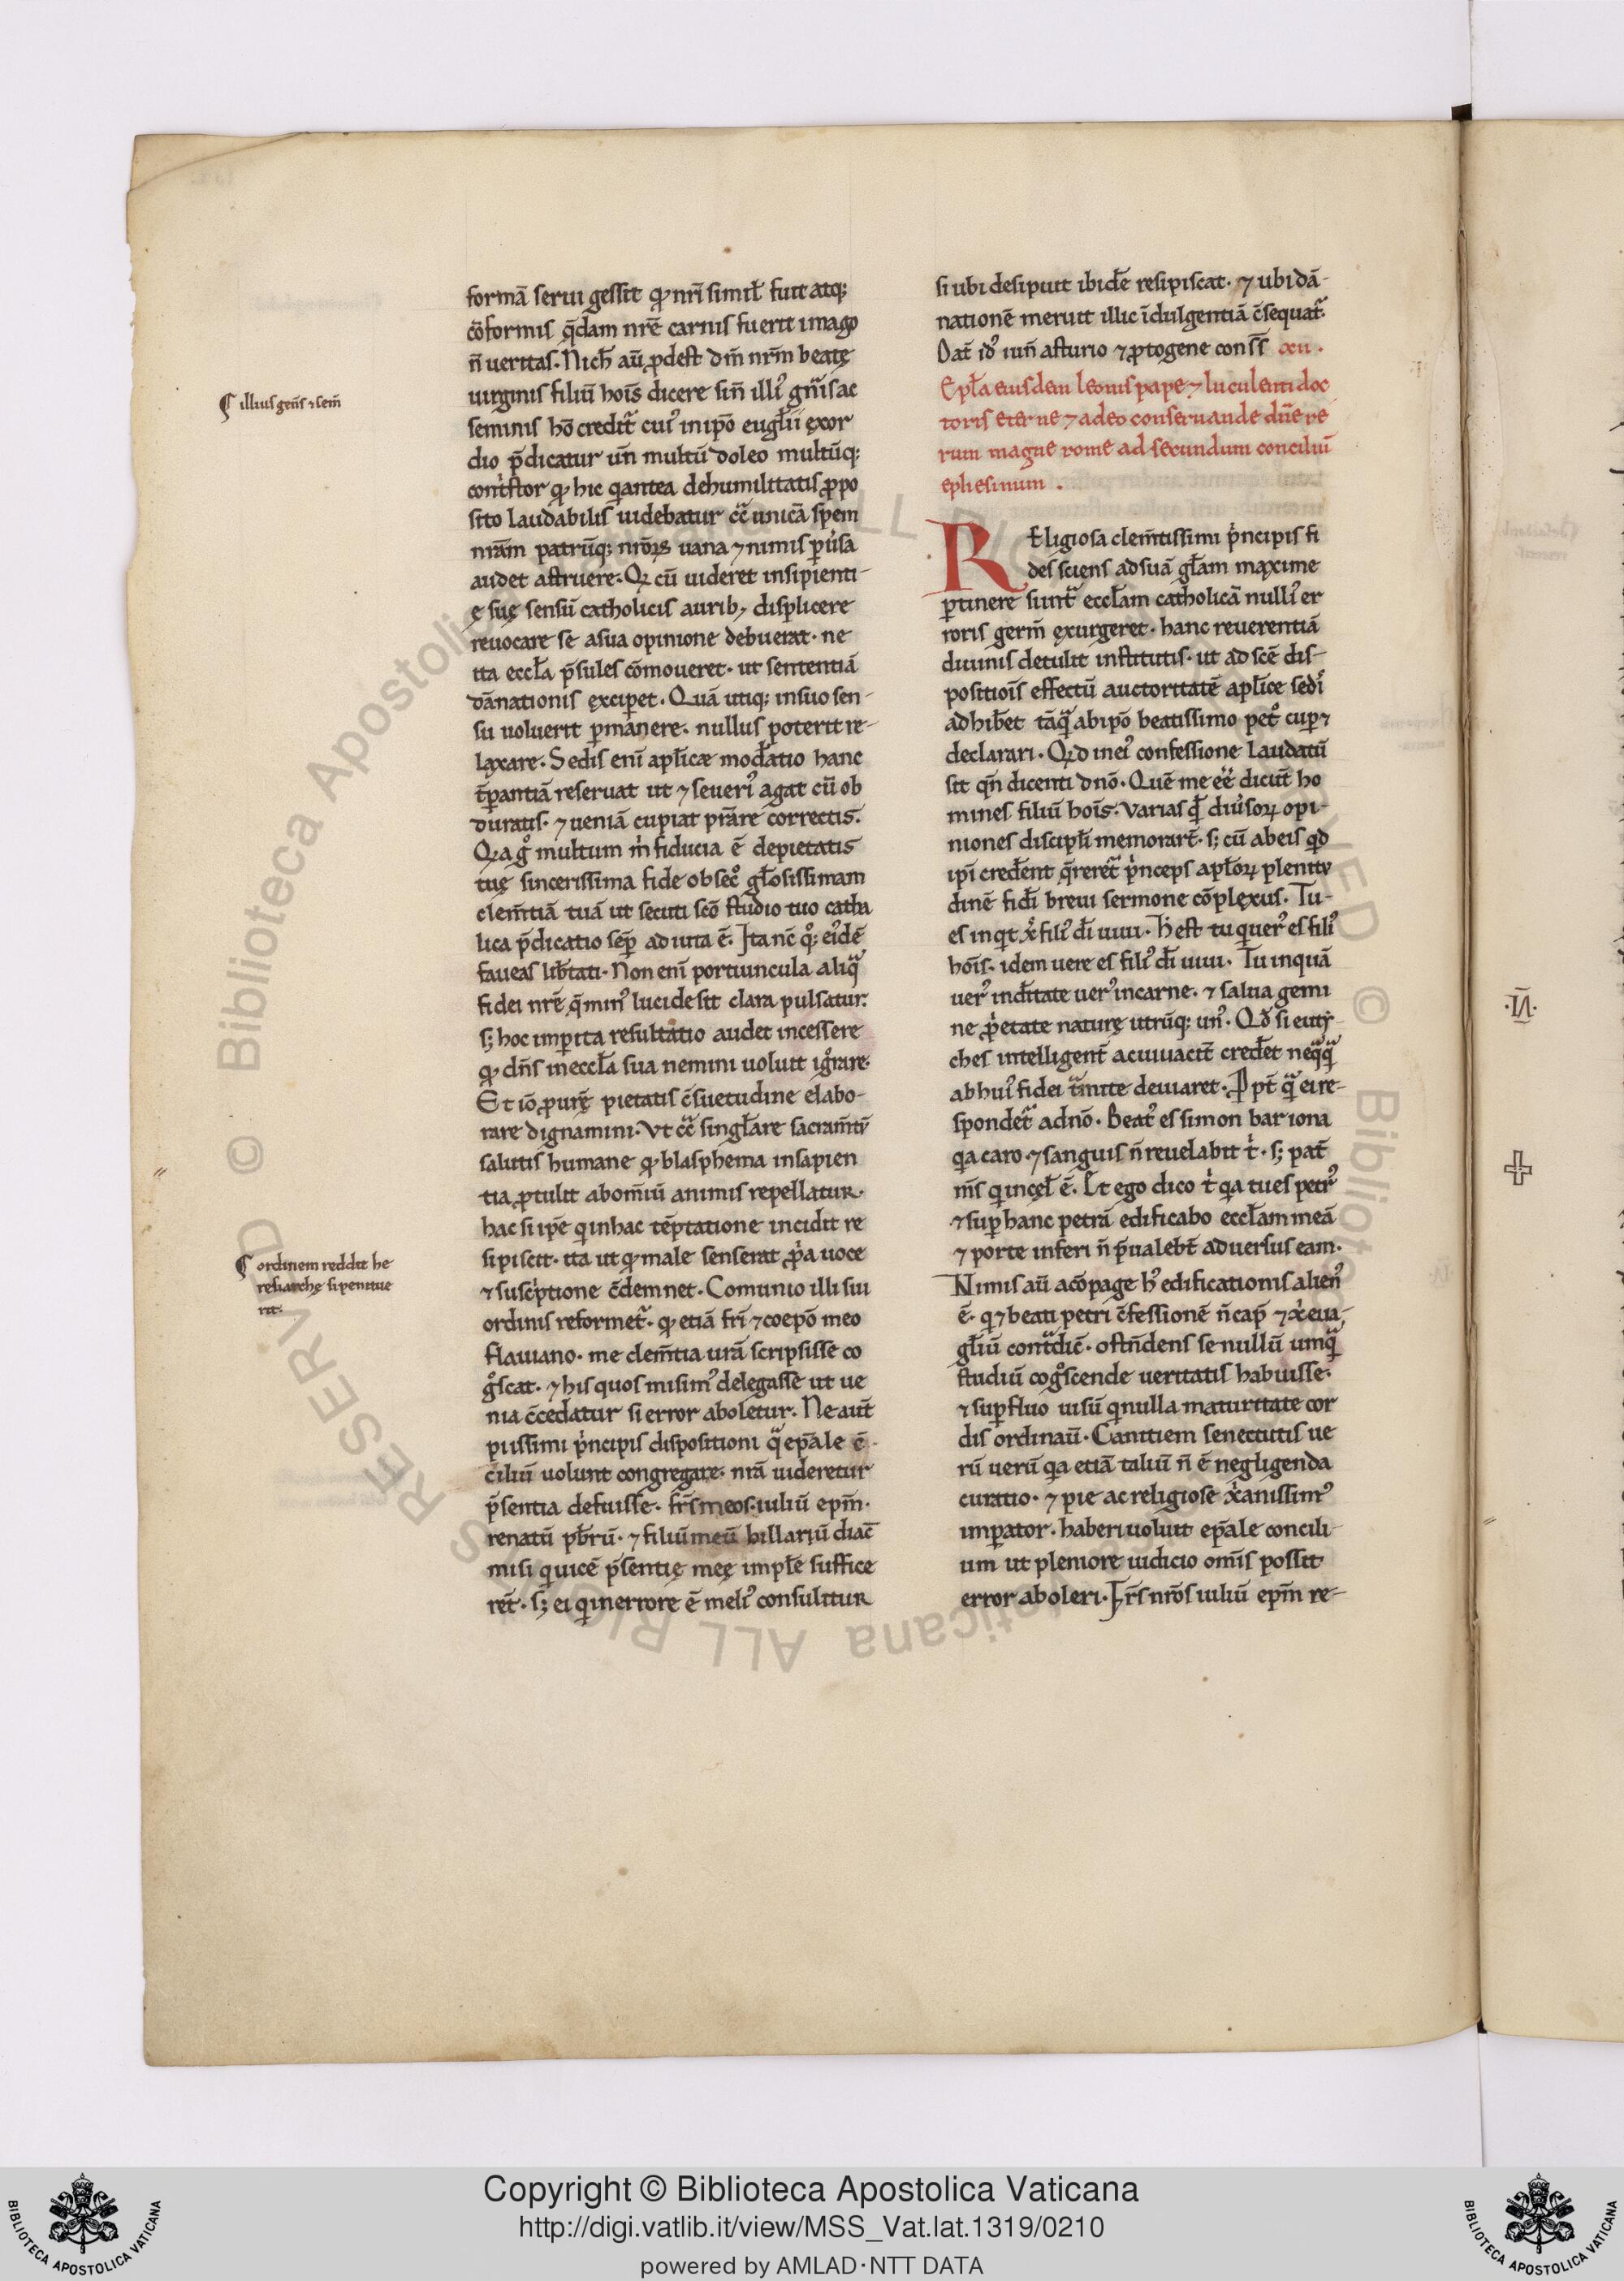 formā serui gessit qđ nr̄i simił fuit atq;
cōformis q̄dam nrē carnis fuerit imago
n̄ ueritas. Nich̄ aū ꝓdest dn̄m nrm̄ beatę
uirginis filiū hoīs dicere sin̄ illi᾿ gn̄is ac
seminis hō credit᷑ cui᾿ in ipō eugłii exor
dio p̄dicatur un̄ multū doleo multūq;
cont᷑stor qđ hic q̇ antea de humilitatis ꝓpo
sito laudabilis uidebatur cc̄ unicā spem
nrām patrūq; nr̄oꝝ uana ⁊ nimis puersa
audet astruere. Qi cū uideret insipienti-
ę suę sensū catholicis aurib; displicere
reuocare se a sua opinione debuerat. ne
ita eccła p̄sules cōmoueret. ut sententiā
dānationis exciꝑet. Quā utiq; in suo sen-
su uoluerit ꝑmanere. nullus poterit re-
laxare. Sedis enī apłicæ mod̄atio hanc
tꝑantiā reseruat ut ⁊ seueri᾿ agat cū ob
duratis. ⁊ ueniā cupiat prāre correctis.
Qa g̊ multum m̍ fiducia ē de pietatis
tuę sincerissima fide obsec̊ głosissimam
clem̄tiā tuā ut secuti scō studio tuo catho
lica p̄dicatio sēp adiuta ē. Ita nc̄ q̊; ei᾿dē
faueas lib̄tati. Non enī portiuncula aliq̄
fidei nrē q̄ min᾿ lucide sit clara pulsatur.
s; hoc imꝑita resultatio audet incessere
qđ dn̄s in eccła sua nemini uoluit ig̊rare.
Et iō ꝓ purę pietatis c̄suetudine elabo-
rare dignamini. Vt cc̄ singłare sacram̄tū
salutis humane qđ blasphema insapien
tia ꝓtulit ab om̄iū animis repellatur.
hac si ipē q̇ in hac tēptatione incidit re
sipiscit. ita ut qđ male senserat ꝓ̍a uoce
⁊ suscṙptione c̄demnet. Comunio illi sui
ordinis reformet᷑. qđ etiā fr̄i ⁊ coepō meo
flauiano. me clem̄tia urā scripsisse co
g̊scat. ⁊ his quos misim᾿ delegasse ut ue
nia c̄cedatur si error aboletur. Ne aut̄
piissimi p̍ncipis dispositioni q̄ ep̄ale c̄-
ciliū uolunt congregare. nrā uideretur
p̄sentia defuisse. fr̄s meos. iuliū ep̄m.
renatū pb̄rū. ⁊ filiū meū hillariū diac̄
misi qui uicē p̄sentię meę implē suffice
rēt. s; ei q̇ in errore ē meli᾿ consulitur
si ubi desipuit ibid̄e resipiscat. ⁊ ubi dā-
nationē meruit illic īdulgentiā c̄sequat᷑.
Dat̄ id᾿ iun̄ asturio ⁊ ꝓtogene consl̄s xii.
Epła eiusdem leonis pape ⁊ luculenti doc
toris eterne ⁊ a deo conseruande dn̄e ue
rum magne rome ad secundum conciliū
ephesinum.
Religiosa clem̄tissimi p̍ncipis fi
des sciens ad suā głam maxime
ꝑtinere siint᷑ eccłam catholicā nulli᾿ er
roris germ̄ exurgeret. hanc reuerentiā
diuinis detulit institutis. ut ad scē dis-
positiōis effectū auctoritatē apłice sedi᾿
adhib̄et tāq̄ ab ipō beatissimo pet᷑ cupe
declarari. Qđ in ei᾿ confessione laudatū
sit qn̄ dicenti dnō. Quē me ēē dicūt ho
mines filiū hoīs. Varias q̄ diu᾿soꝝ opi-
niones discipłi memorar̄t. s; cū ab eis qđ
ipī cred̄ent q̄reret᷑ p̍nceps apłoꝝ plenitu
dinē fid̄i breui sermone cōplexus. Tu-
es inq̇t xp̄c fili᾿ d̄i uiui. H̄ est tu q̇ uer᾿ es fili᾿
hoīs. idem uere es fili᾿ d̄i uiui. Tu inquā
uer᾿ in d̄itate uer᾿ in carne. ⁊ salua gemi
ne ꝓ̍etate naturę utrūq; un᾿. Qđ si euty-
ches intelligent̄ ac uiuacit̄ cred̄et neq̄q̄
ab hui᾿ fidei tr̄mite deuiaret. Ppt̄ q̄ ei re-
spondet᷑ a dnō. Beat᾿ es simon bar iona
q̇a caro ⁊ sanguis n̄ reuelabit t̍. s; pat̄
m̄s q̇ in cęł ē. Et ego dico t̍ q̇a tu es petr᾿
⁊ suꝑ hanc petrā edificabo eccłam meā
⁊ porte inferi n̄ p̄ualebt̄ aduersus eam.
Nimis aū a cōpage h᾿ edificationis alien᾿
ē. q̇ ⁊ beati petri c̄fessionē n̄ cap̄ ⁊ xp̍ eua-
głiū cont᷑dic̄. ostn̄dens se nullū umq̄
studiū cog̊scende ueritatis habuisse.
⁊ suꝑfluo uisū q̇ nulla maturitate cor
dis ordinaū. Canitiem senectutis ue
rū uerū q̇a etiā taliū n̄ ē negligenda
curatio. ⁊ pie ac religiose xp̍anissim᾿
imꝑator. haberi uoluit ep̄ale concili-
um ut pleniore iudicio om̄is possit
error aboleri. Fr̄s nrōs iuliū ep̄m re-
illius gen̄s ⁊ sem̄
ordinem reddit he
resiarchę si penitue
rit.
Copyright © Biblioteca Apostolica Vaticana
http://digi.vatlib.it/view/MSS_Vat.lat.1319/0210
powered by AMLAD·NTT DATA
BIBLIOTECA APOSTOLICA VATICANA
BIBLIOTECA APOSTOLICA VATICANA
© Biblioteca Apostolica Vaticana ALL RIGHTS RESERVED